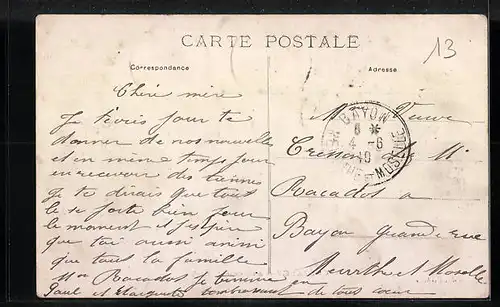 CARTE POSTALE
13
Correspondance
Adresse
Chère mère
Je t'écris pour te
donner de nos nouvelle
et en même temps pour
en recevoir des tiennes
Je te dirais que tout
le se porte bien pour
le moment et j'espère
que toi aussi ainsi
que toute la famille
Mme Racadot se termine en
Paul et Marguerite t'embrassent de tous coeur
Mme Veuve
Cresson M
Racadot a
Bayon Grande rue
Meurthe et Moselle
BAYON
6 *
4 -6
10
MEURTHE ET MOSELLE